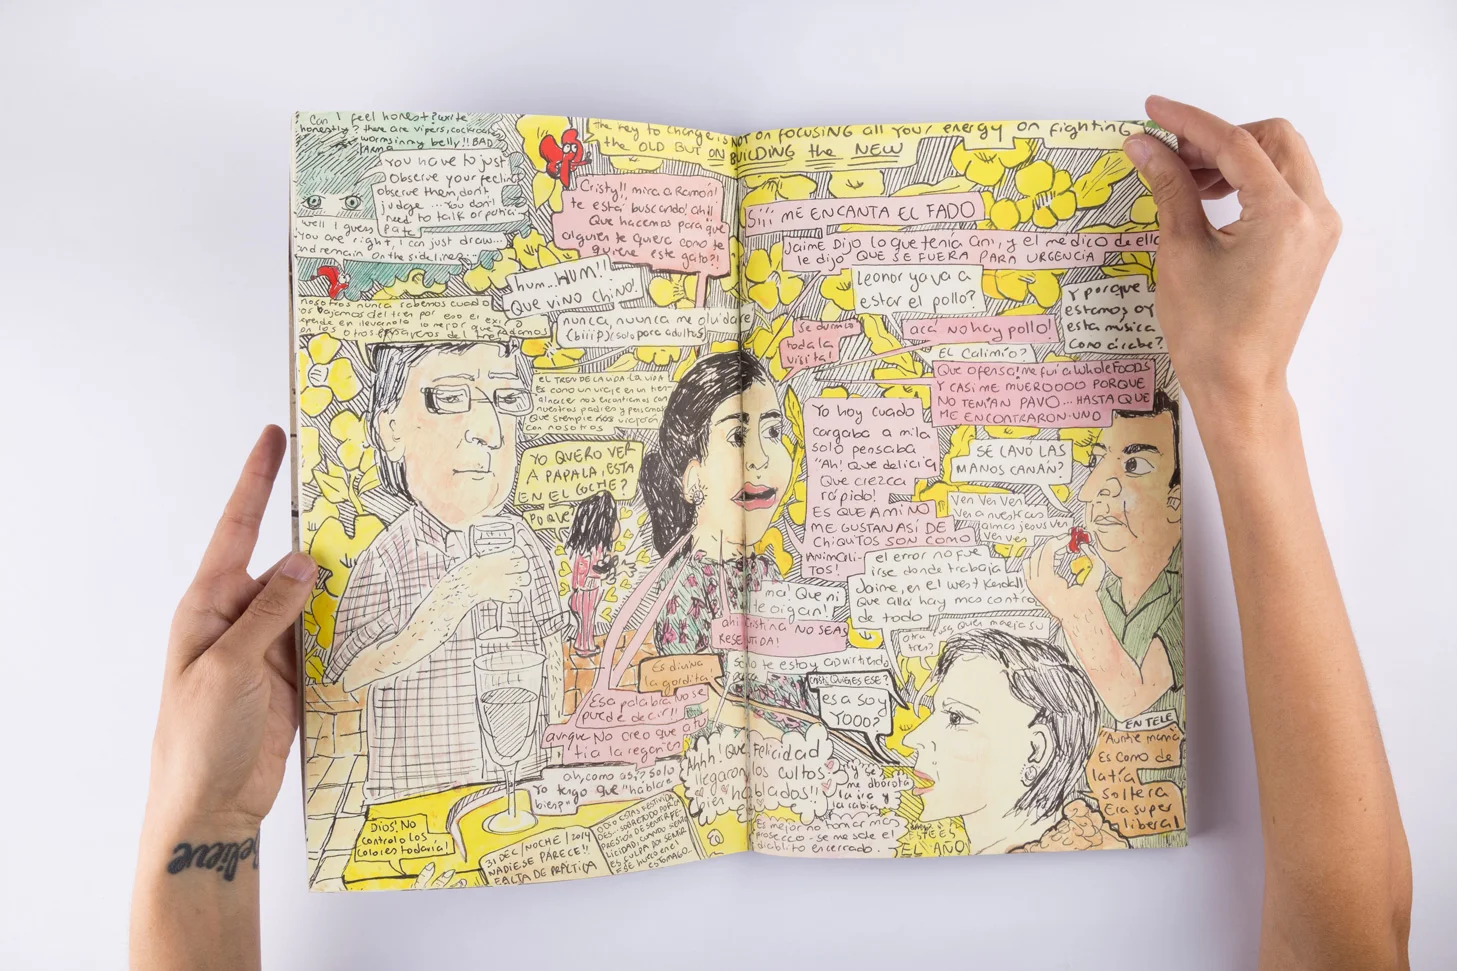 Can I feel honest? write
honestly? there are vipers, cockroaches
worms in my belly!! BAD
KARMA
You have to just
Observe your feelings
observe them, don't
judge .... You don't
need to talk or partici-
pate
well I guess
You are right, I can just draw...
and remain on the sideline
the key to change is NOT on focusing all your energy on fighting
the OLD BUT ON BUILDING the NEW
Cristy!! mira a Ramón!
te está buscando! ah!!
Que hacemos para que
alguien te quiera como te
quiere este gato?!
hum...HUM!!
Que vino chino!
nunca, nuunca me olvidare
(biiip) (solo para adultos)
nosotros nunca sabemos cuado
nos bajamos del tren por eso el exito
depende en
EL TREN DE LA VIDA. LA VIDA
es como un viaje en un tren
al nacer nos encontramos con
nuestros padres y
Que siempre
con nosotros
YO QUERO VER
A PAPALA, ESTA
EN EL COCHE?
PO QUE
Siii ME ENCANTA EL FADO
Jaime Dijo lo que tenia Cini, y el medico de ella
le dijo QUE SE FUERA PARA URGENCIA
Leonor ya va a
estar el pollo?
Y porque
estamos oy
esta música
como árabe?
Se durmio
toda la
visita!
acá no hay pollo!
EL Calimio?
Que ofensa! me fui a Whole FOODS
Y CASI ME MUEROOOO PORQUE
NO TENIAN PAVO... HASTA QUE
ME ENCONTRARON UNO
Yo hoy cuado
cargaba a mila
solo pensaba
"Ah! Que delicia
Que crezca
rápido!
ES QUE A MI NO
ME GUSTAN ASI DE
CHIQUITOS SON COMO
ANIMALI-
TOS!
SE LAVÓ LAS
MANOS CANÁN?
Ven Ven Ven
Ven a nuestras
almas Jesus ven
ven ven
el error no fue
irse donde trabaja
Jaime, en el west Kendall
Que alla hay mas contro
de todo
ma! Que ni
te oigan!
ahi Cristina NO SEAS
RESENTIDA!
solo te estoy advirtiendo
Es divino
la gordita!
Cristi QUIEN ES ESE?
esa soy
YOOO?
Esa palabra No se
puede decir!!
aunque No creo que a tu
tia la regañen
ah, como asi? Solo
Yo tengo que "hablar
bien"
Ahhh! Que Felicidad
llegaron los cultos
bien hablados!!
me dborota
la ira y
la rabia
Es mejor no tomar mas
prosecco - se me sale el
diablito encerrado.
EL AÑO
EN TELE
"Auntie mame
Es como de
la tia
soltera
Era super
liberal
Dios! No
controlo los
colores todavia!
31 DEC / NOCHE / 2014
NADIE SE PARECE!!
FALTA DE PRÁCTICA
Believe